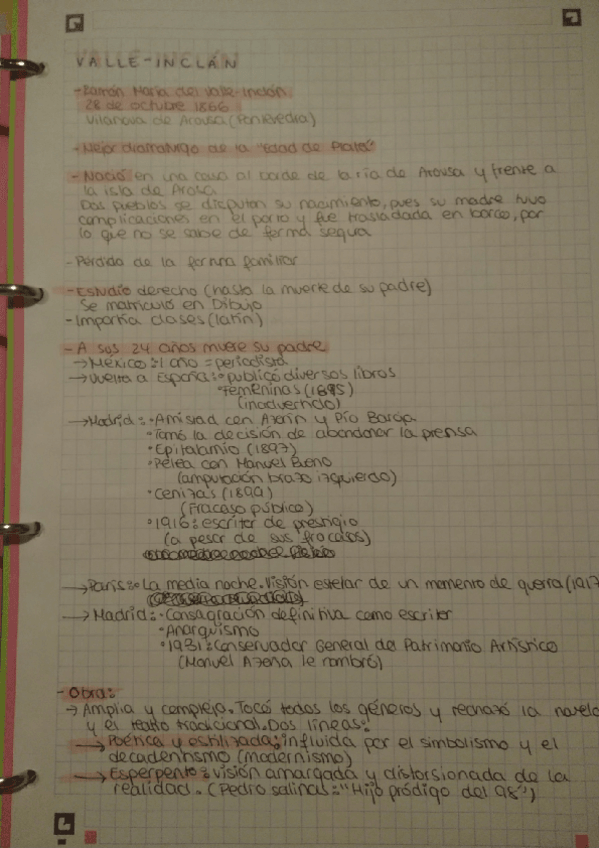 VALLE-INCLÁN
- Ramón María del Valle-Inclán
28 de octubre 1866
Vilanova de Arousa (Pontevedra)
- Mejor dramaturgo de la "Edad de Plata"
- Nació en una casa al borde de la ría de Arousa y frente a
la isla de Arosa
Dos pueblos se disputan su nacimiento, pues su madre tuvo
complicaciones en el parto y fue trasladada en barco, por
lo que no se sabe de forma segura
- Pérdida de la fortuna familiar
- Estudio derecho (hasta la muerte de su padre)
Se matriculó en Dibujo
- Impartía clases (latín)
- A sus 24 años muere su padre
→ México: 1 año = periodista
→ Vuelta a España: • publicó diversos libros
• Femeninas (1895)
(inadvertido)
→ Madrid: • Amistad con Azorín y Pío Baroja
• Tomó la decisión de abandonar la prensa
• Epitalamio (1897)
• Pelea con Manuel Bueno
(amputación brazo izquierdo)
• Cenizas (1899)
(Fracaso público)
• 1916: escritor de prestigio
(a pesar de sus fracasos)
→ París: • La media noche. Visión estelar de un momento de guerra (1917
→ Madrid: • Consagración definitiva como escritor
• Anarquismo
• 1931: Conservador General de Patrimonio Artístico
(Manuel Azaña le nombró)
- Obra:
→ Amplia y compleja. Tocó todos los géneros y rechazó la novela
y el teatro tradicional. Dos líneas:
→ Poética y estilizada: influida por el simbolismo y el
decadentismo (modernismo)
→ Esperpento: visión amargada y distorsionada de la
realidad. (Pedro Salinas: "Hijo pródigo del 98")